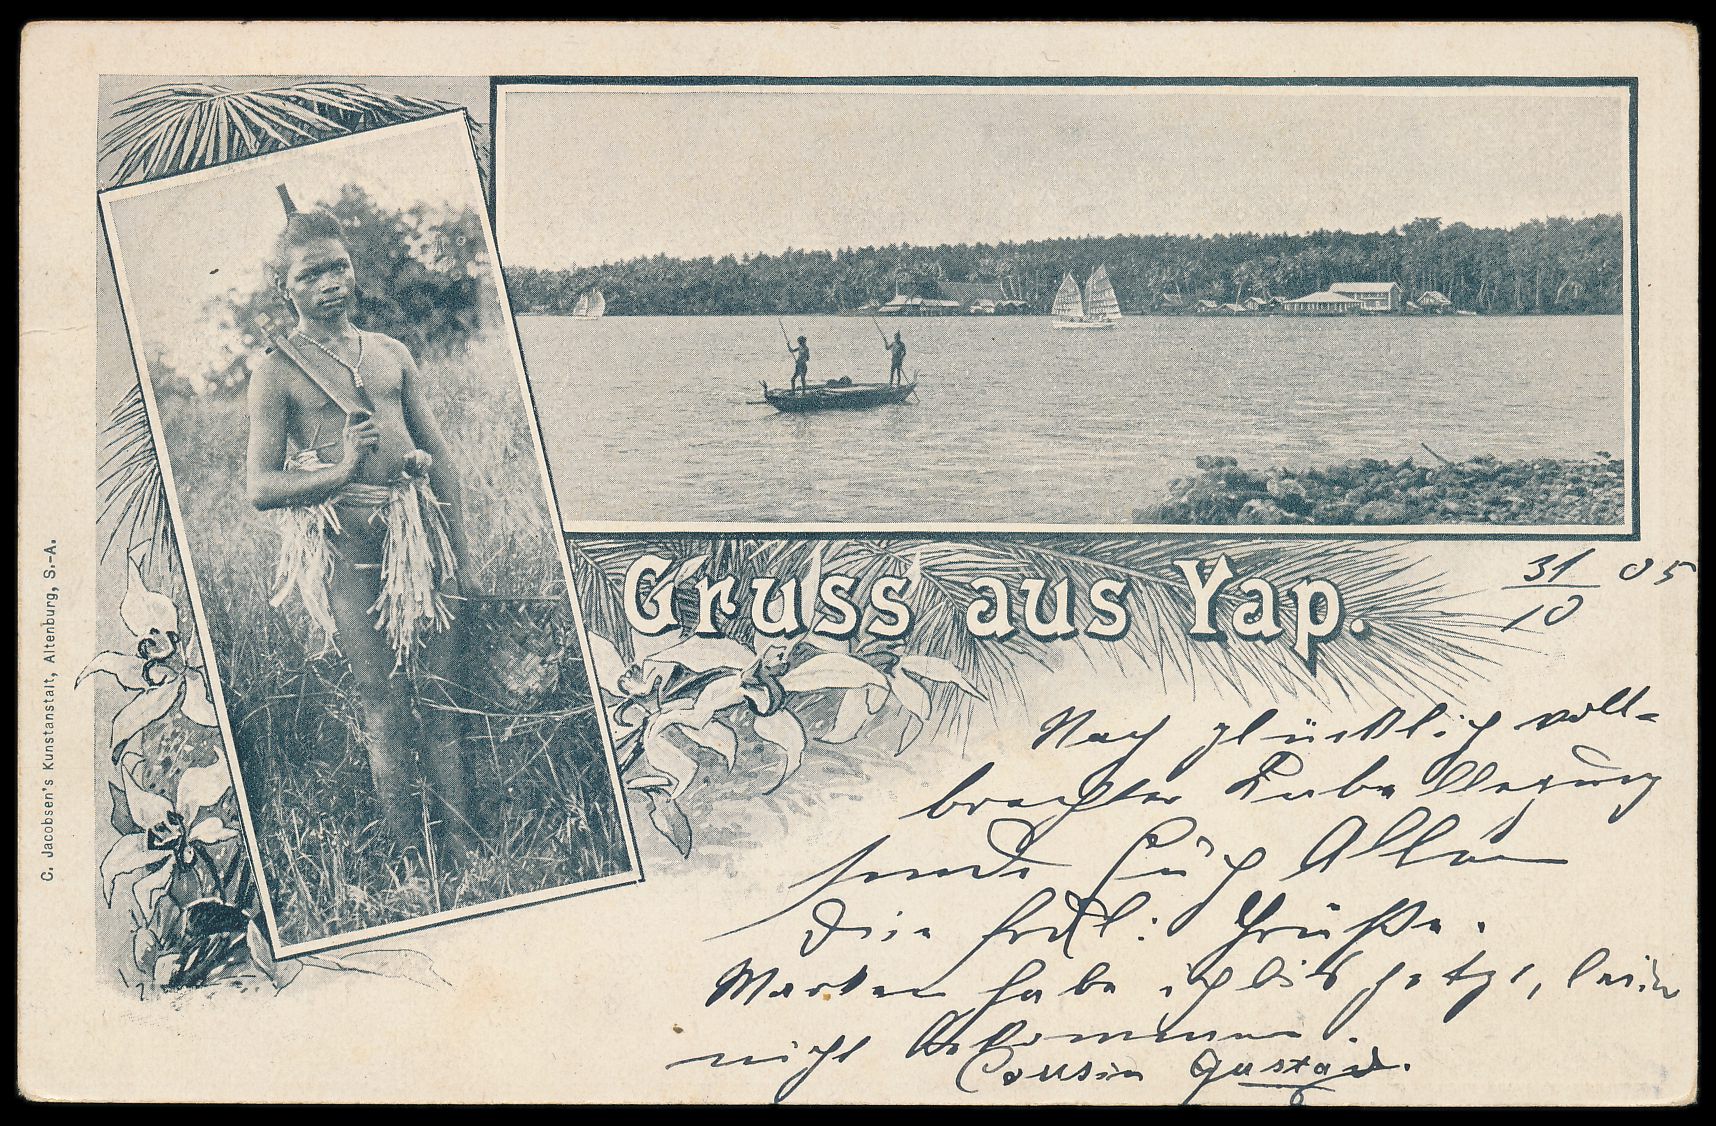 Gruss aus Yap.
31/10 05
Nach glücklich voll-
brachter Kabellegung
sende Euch Allen
die frdl: Grüße.
Marken habe ich bis jetzt, leider
nicht bekommen.
Cousin Gustav.
C. Jacobsen's Kunstanstalt, Altenburg, S.-A.